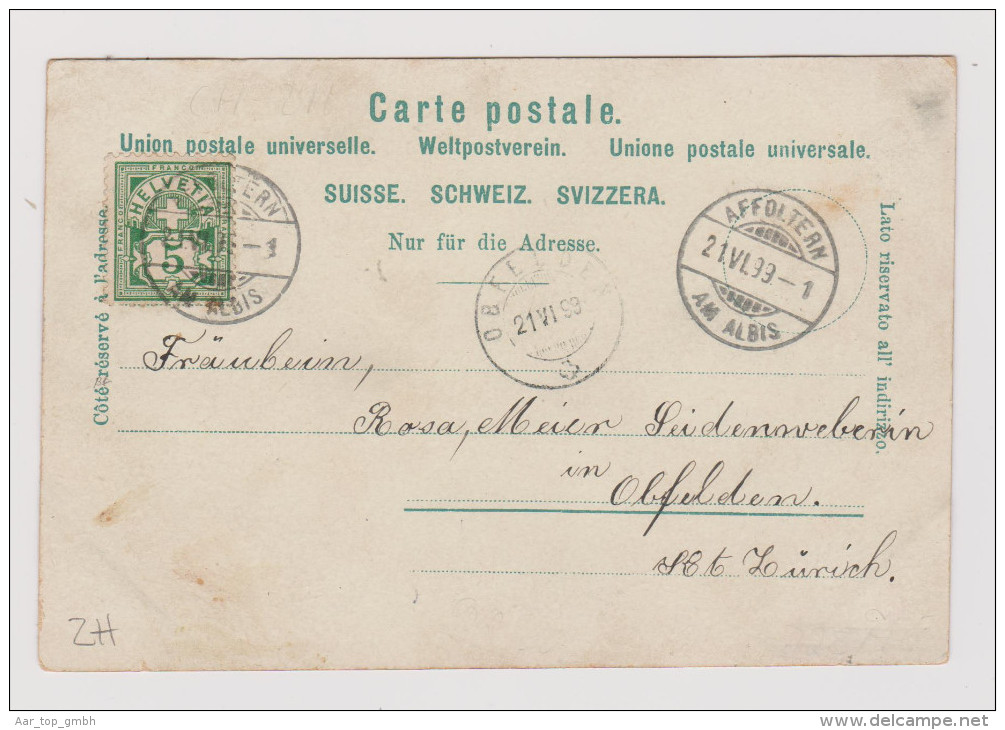 Carte postale.
Union postale universelle. Weltpostverein. Unione postale universale.
SUISSE. SCHWEIZ. SVIZZERA.
Nur für die Adresse.
Côté réservé à l'adresse.
Lato riservato all' indirizzo.
FRANCO
FRANCO
HELVETIA
5
TERN
- 1
AM ALBIS
OBFELDEN
21 VI 99
AFFOLTERN
21.VI.99 - 1
AM ALBIS
Fräulein,
Rosa, Meier Seidenweberin
in
Obfelden.
Kt Zürich.
ZH
Aar_top_gmbh
delcampe.net